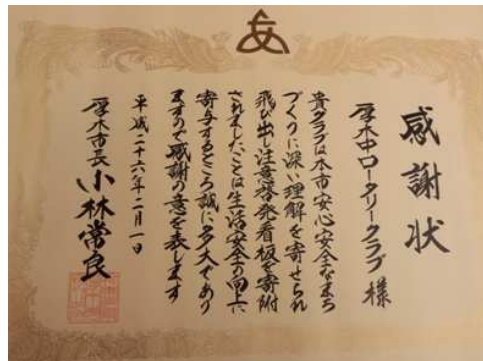 感謝状
厚木中ロータリークラブ 様
貴クラブは本市安心安全なまち
づくりに深い理解を寄せられ
飛び出し注意啓発看板を寄附
されましたことは生活安全の向上に
寄与するところ誠に多大であり
ますので感謝の意を表します
平成二十六年二月一日
厚木市長 小林常良